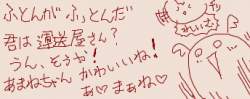 ふとんがふっとんだ
君は運送屋さん?
うん、そうや!
あまねちゃんかわいいね!
あ♡まぁね♡
れいさ